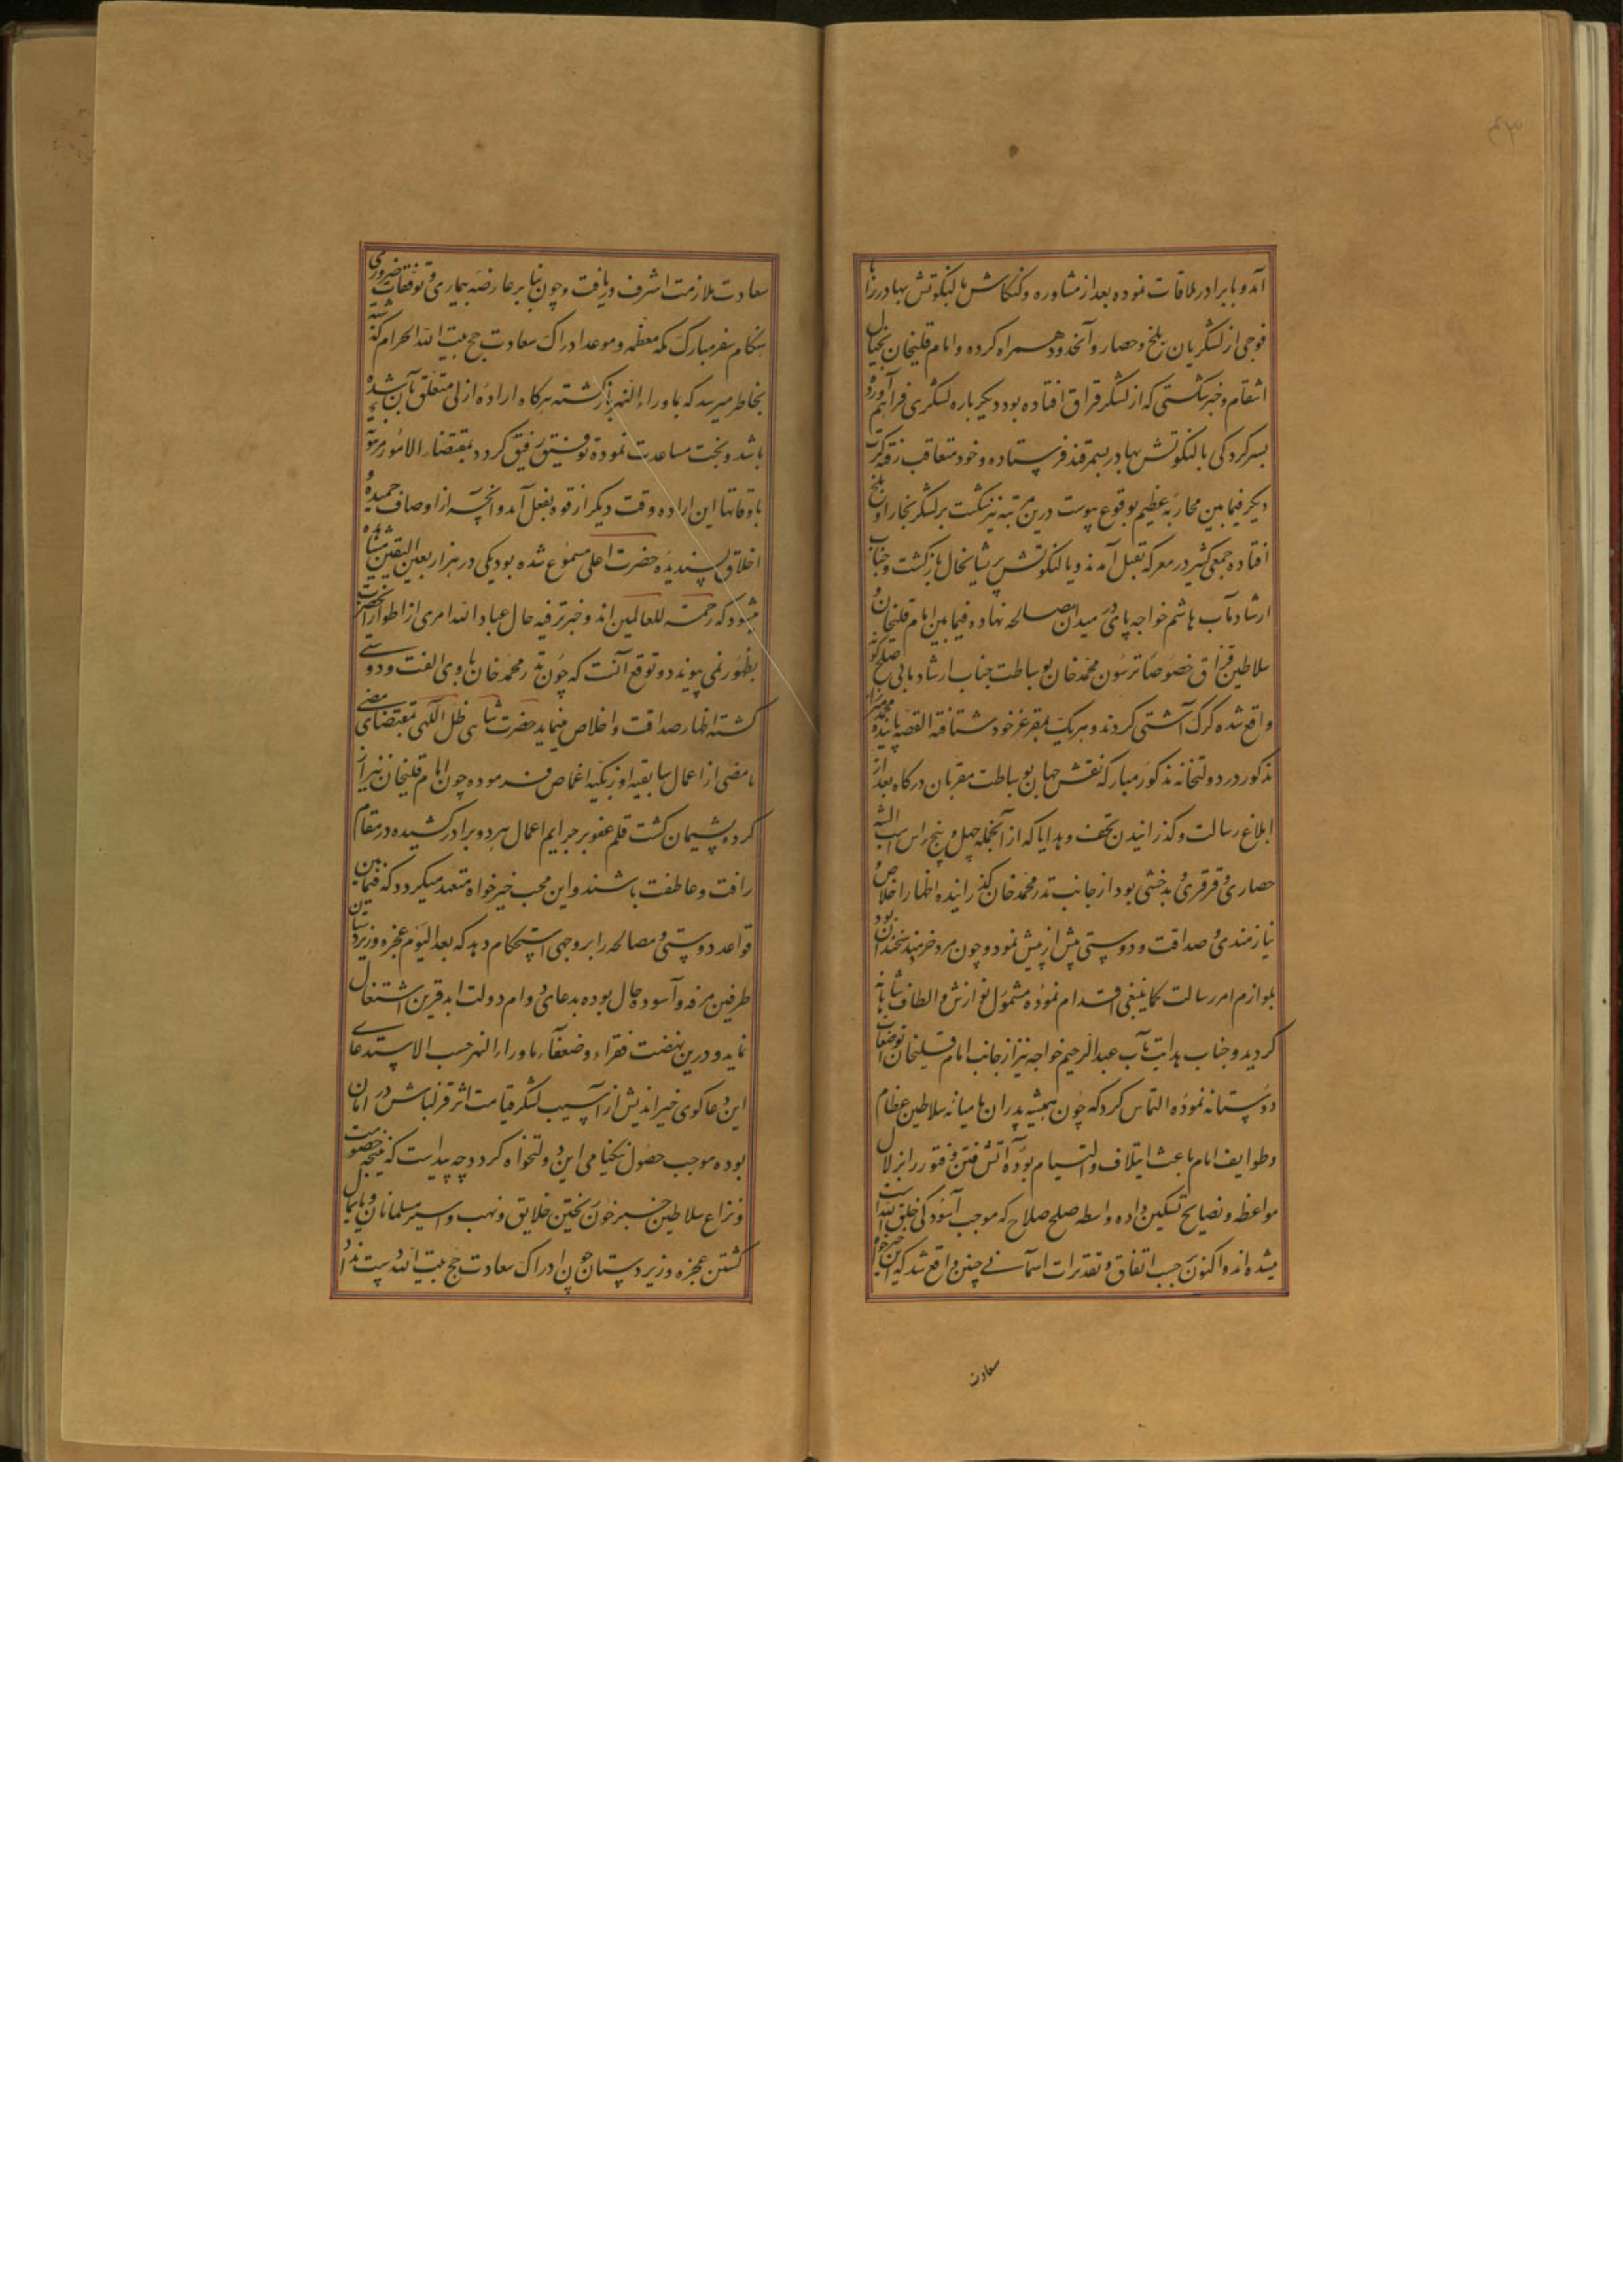 آمد و با برادر ملاقات نموده بعد از مشاوره و کنکاش با لنکوتش بهادر را با
فوجی از لشکریان بلخ و حصار و آنحدود همراه کرده و امام قلیخان بخیال
انتقام و خبر شکستی که از لشکر قزاق افتاده بود دیکرباره لشکری فراهم آورده
بسرکردکی بالنکوتش بهادر بسمرقند فرستاده و خود متعاقب رفته کرت
دیکر فیمابین محاربه عظیم بوقوع پیوست درین مرتبه نیز شکست بر لشکر بخارا و بلخ
افتاده جمعی کثیر در معرکه بقتل آمدند و یالنکوتش پریشانحال بازکشت و جناب
ارشادمآب هاشم خواجه پای در میدان مصالحه نهاده فیمابین امام قلیخان و
سلاطین قزاق خصوصا ترسون محمد خان بوساطت جناب ارشاد مابی صلح کونه
واقع شده کرک آشتی کردند و هر یک بمقر عز خود شتافته القصه پاینده محمد میرزا
مذکور در دولتخانه مذکور مبارکه نقش جهان بوساطت مقربان درکاه بعد از
ابلاغ رسالت و کذرانیدن تحف و هدایا که از آنجمله چهل و پنج راس اسب
حصاری و قرقری و بدخشی بود از جانب ندر محمد خان کذرانیده اظهار اخلاص و
نیازمندی و صداقت و دوستی بیش از پیش نمود و چون مرد خرمند سخندان بود
بلوازم امر رسالت کما ینبغی اقدام نموده مشمول نوازش و الطاف شاهانه
کردید و جناب هدایت مآب عبد الرحیم خواجه نیز از جانب امام قلیخان تواضعات
دوستانه نموده التماس کرد که چون همیشه پدران ما میانه سلاطین عظام
و طوایف انام باعث ایتلاف و التیام بوده آتش فتن و فتور را بزلال
مواعظه و نصایح تسکین داده واسطه صلح صلاح که موجب آسودکی خلق الله است
میشده اند و اکنون بحسب اتفاق و تقدیرات آسمانی چنین واقع شد که این خیرخواه
سعادت
سعادت ملازمت اشرف دریافت و چون بنا بر عارضه بیماری و توقفات ضروری
هنکام سفر مبارک مکه معظمه و موعد ادراک سعادت حج بیت الله الحرام کذشته
بخاطر میرسد که بماوراءالنهر بازکشته هرکاه اراده ازلی متعلق بآن شده
باشد و بخت مساعدت نموده توفیق رفیق کردد بمقتضاء الامور مرهونة
باوقاتها این اراده وقت دیکر از قوه بفعل آمد و آنچه از اوصاف حمیده و
اخلاق پسندیده حضرت اعلی مسموع شده بود یکی در هزار بعین الیقین مشاهده
میشود که رحمة للعالمین اند و خبر ترفیه حال عباد الله امری از اطوار آنحضرت
بظهور نمی پیوندد و توقع آنست که چون ندر محمد خان با وی الفت و دوستی
کشته اظهار صداقت و اخلاص مینماید حضرت شاهی ظل اللهی بمقتضای مضی
ما مضی از اعمال سابقه اوزبکیه اغماض فرموده چون امام قلیخان نیز از
کرده پشیمان کشت قلم عفو بر جرایم اعمال هر دو برادر کشیده در مقام
رافت و عاطفت باشند و این محب خیرخواه متعهد میکردد که فیمابین
قواعد دوستی و مصالحه را بر وجهی استحکام دهد که بعد الیوم عجزه و زیردستان
طرفین مرفه و آسوده حال بوده بدعای دوام دولت ابد قرین اشتغال
نمایند و درین نهضت فقراء و ضعفاء ماوراءالنهر حسب الاستدعای
این دعاکوی خیراندیش از آسیب لشکر قیامت اثر قزلباش در امان
بوده موجب حصول نیکنامی این دولتخواه کردد چه پیداست که نتیجه خصومت
و نزاع سلاطین خبر خون ریختن خلایق و نهب و اسیر مسلمانان و پایمال
کشتن عجزه و زیردستان چون ادراک سعادت حج بیت الله دست نداد